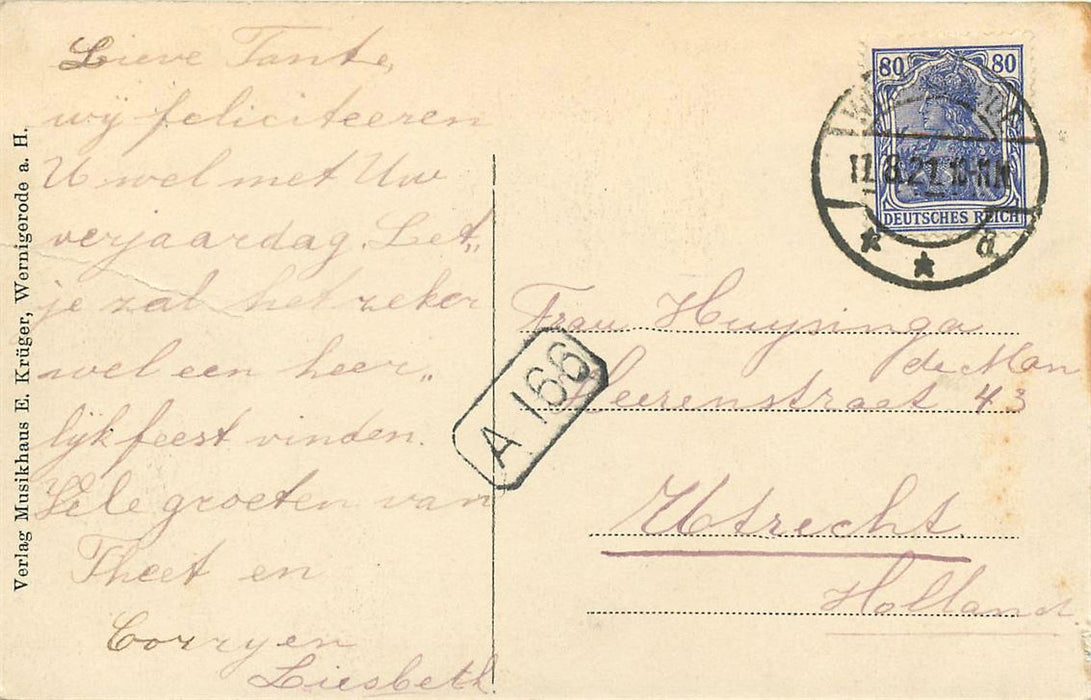 Lieve Tante,
wij feliciteeren
U wel met Uw
verjaardag. Let„
je zal het zeker
wel een heer„
lijk feest vinden.
Vele groeten van
Theet en
Corry en
Liesbeth
Verlag Musikhaus E. Krüger, Wernigerode a. H.
80 80
DEUTSCHES REICH
11.8.21. 10-11 N
a
A 166
Frau Huysinga
de Man
Heerenstraat 43
Utrecht.
Holland